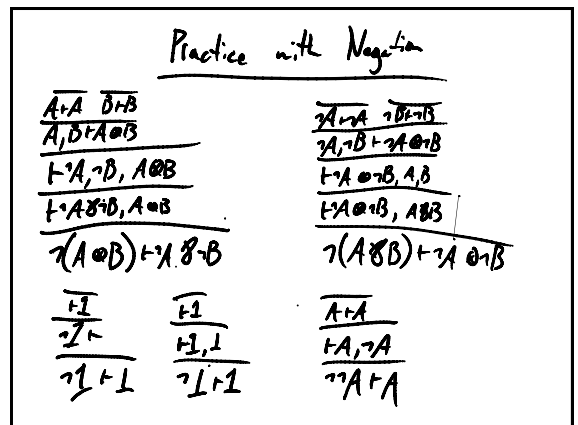 Practice with Negation
A⊢A B⊢B
A,B⊢A⊗B
⊢¬A,¬B, A⊗B
⊢¬A⅋¬B, A⊗B
¬(A⊗B)⊢¬A⅋¬B
¬A⊢¬A ¬B⊢¬B
¬A,¬B⊢¬A⊗¬B
⊢¬A⊗¬B, A,B
⊢¬A⊗¬B, A⅋B
¬(A⅋B)⊢¬A⊗¬B
⊢1
¬1⊢
¬1⊢⊥
⊢1
⊢1,⊥
¬⊥⊢1
A⊢A
⊢A,¬A
¬¬A⊢A